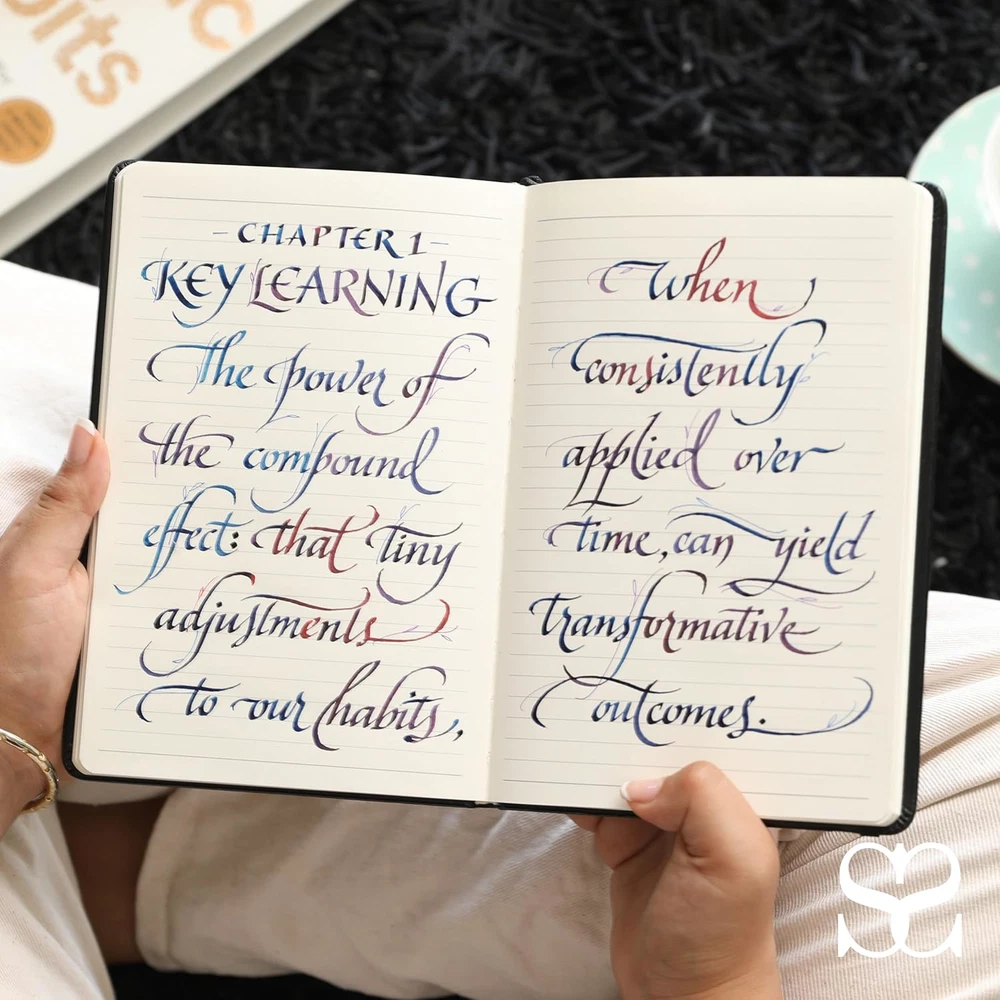 ic
bits
- CHAPTER 1 -
KEY LEARNING
The power of
the compound
effect: that tiny
adjustments
to our habits,
When
consistently
applied over
time, can yield
transformative
outcomes.